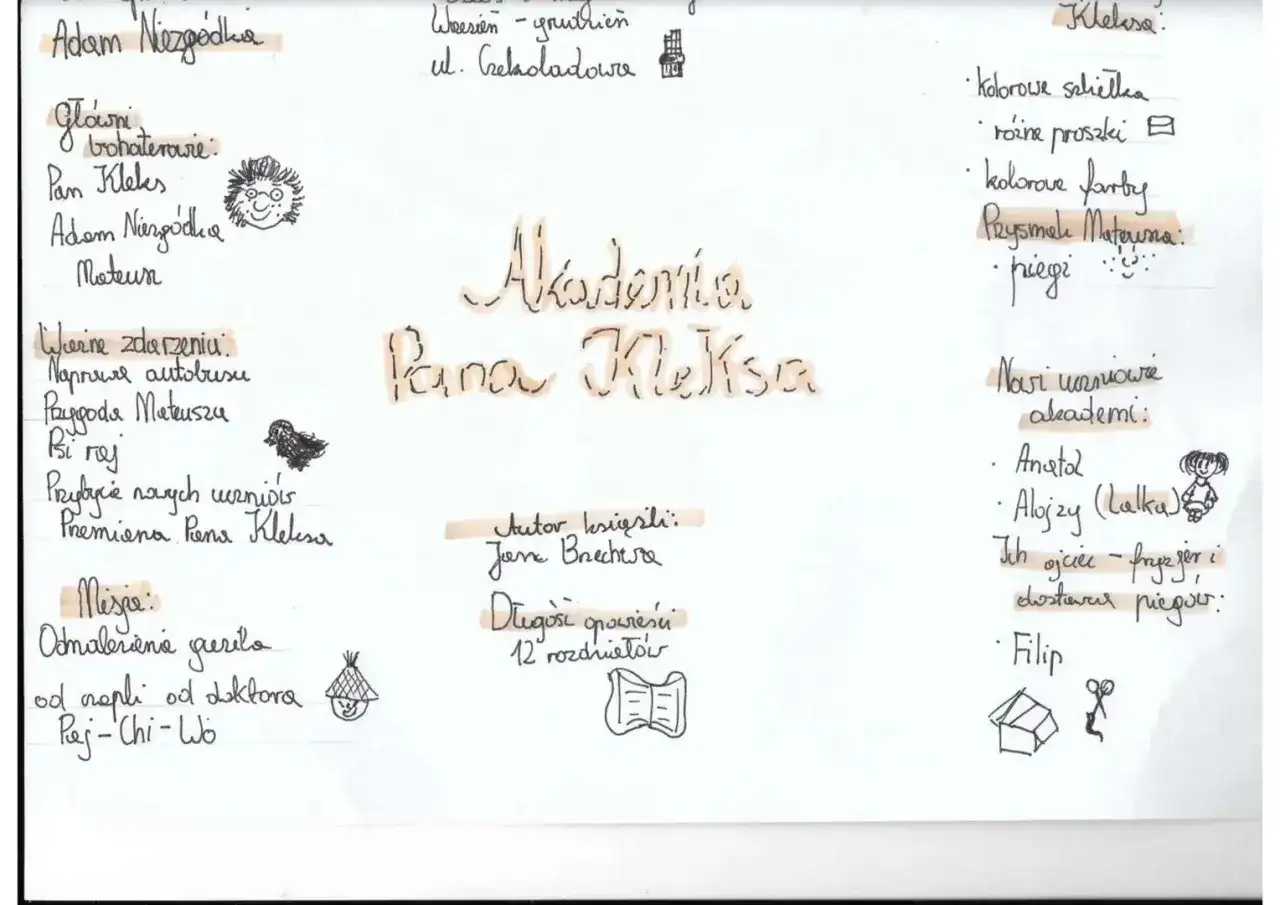 Adam Niezgódka
Główni
bohaterowie:
Pan Kleks
Adam Niezgódka
Mateusz
Ważne zdarzenia:
Naprawa autobusu
Przygoda Mateusza
Psi raj
Przybycie nowych uczniów
Premiana Pana Kleksa
Misja:
Odnalezienie guzika
od czapki od doktora
Paj-Chi-Wo
Wrzesień - grudzień
ul. Czekoladowa
Akademia
Pana Kleksa
Autor książki:
Jan Brzechwa
Długość opowieści
12 rozdziałów
Kleksa:
· kolorowe szkiełka
· różne proszki
· kolorowe farby
Przysmak Mateusza:
· piegi
Nowi uczniowie
akademi:
· Anatol
· Alojzy (Lalka)
Ich ojciec - fryzjer i
dostawca piegów:
· Filip